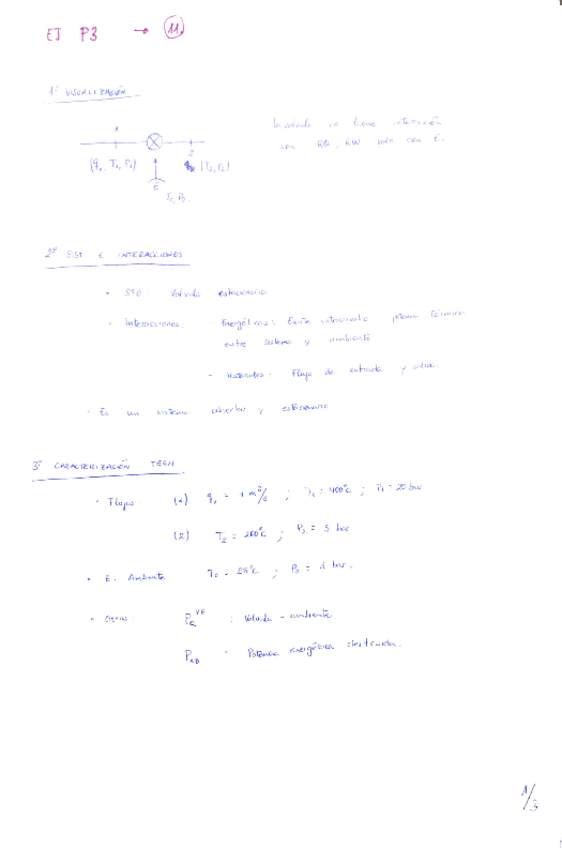 EJ P3 → 11.
1º VISUALIZACIÓN
la válvula no tiene interacción
con RQ, RW solo con E.
1
2
(q₁, T₁, P₁)
(T₂, P₂)
E
T₀, P₀
2º SIST E INTERACCIONES
• STD: Válvula estacionaria
- Interacciones: - Energéticas: Existe potencia térmica
entre sistema y ambiente
- Flujo de entrada y salida.
- Es un sistema abierto y estacionario
3º CARACTERIZACIÓN TERM
- Flujos: (1) q₁ = 1 m³/s ; T₁ = 400ºC ; P₁ = 20 bar
(2) T₂ = 200ºC ; P₂ = 5 bar
• E: Ambiente T₀ = 25ºC ; P₀ = 1 bar.
- Otros: : Válvula - ambiente
Potencia exergética destruida.
1/3